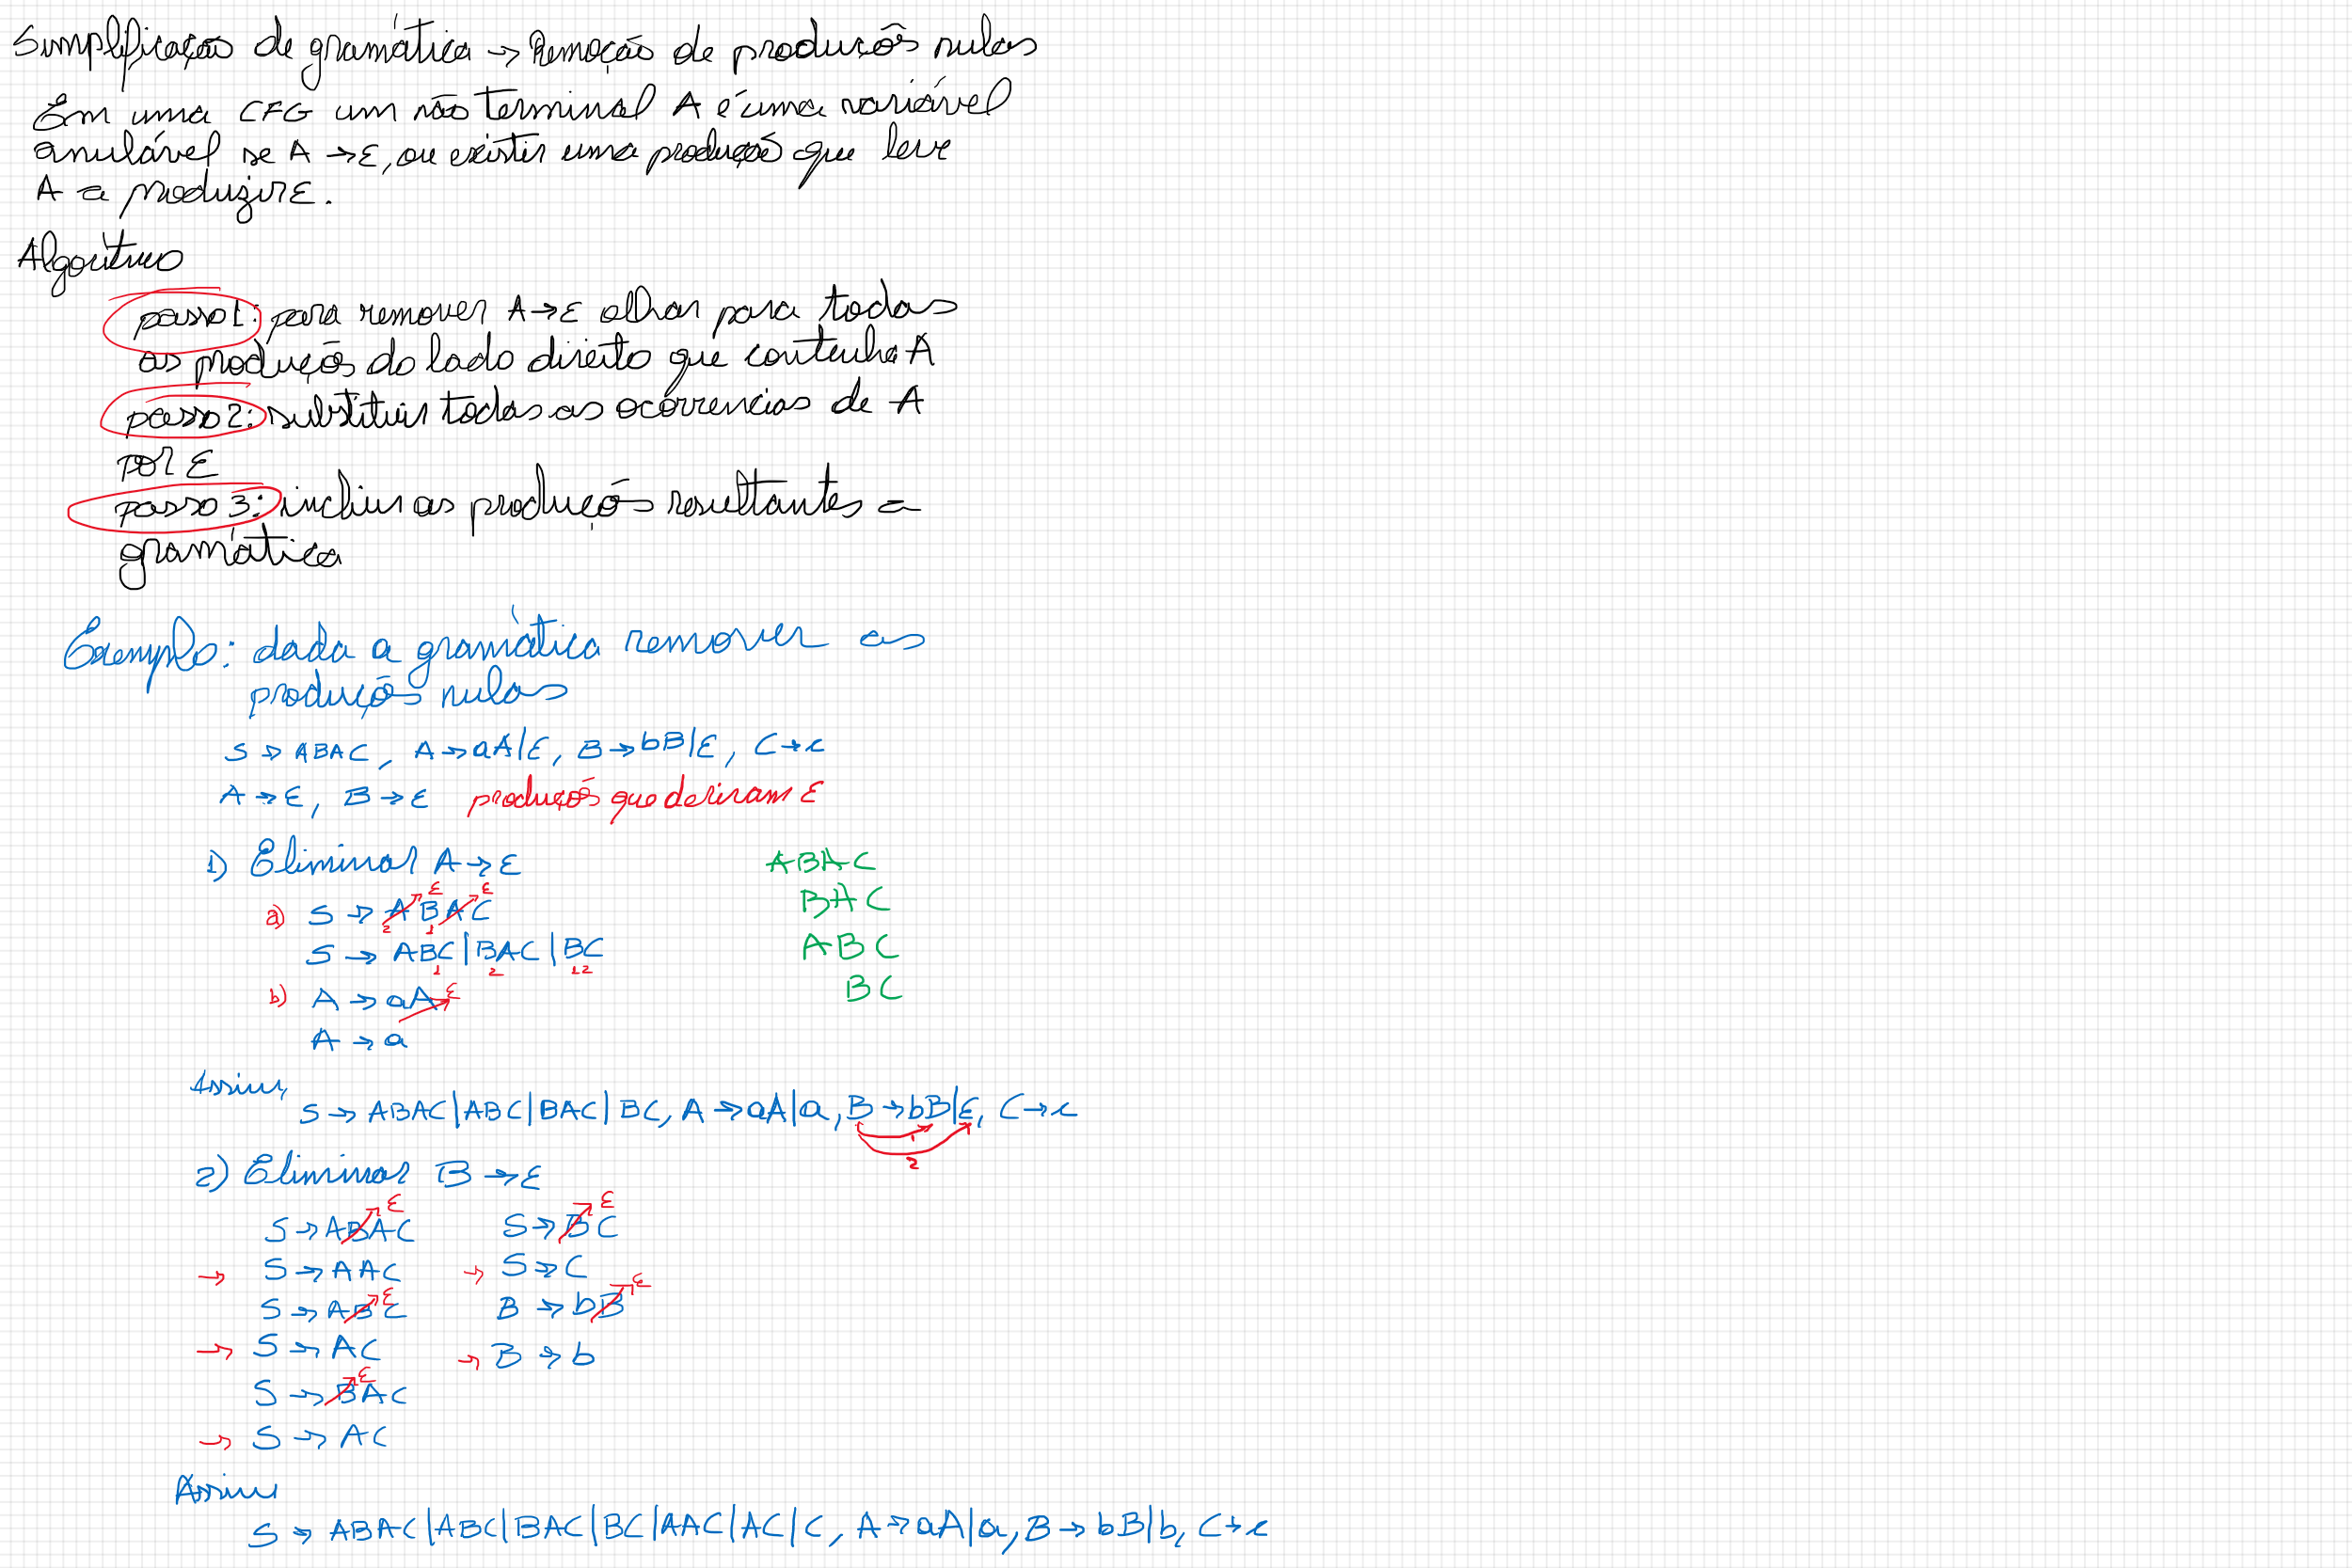 Simplificação de gramática → Remoção de produções nulas
Em uma CFG um não terminal A é uma variável
anulável se A → ε, ou existir uma produção que leve
A a produzir ε.
Algoritmo
passo 1: para remover A → ε olhar para todas
as produções do lado direito que contenha A
passo 2: substituir todas as ocorrencias de A
por ε
passo 3: incluir as produções resultantes a
gramática
Exemplo: dada a gramática remover as
produções nulas
S → ABAC, A → aA|ε, B → bB|ε, C → c
A → ε, B → ε produções que derivam ε
1) Eliminar A → ε
ε ε
a) S → ABAC
2 1
S → ABC|BAC|BC
1 2 12
b) A → aA ε
A → a
ABAC
BAC
ABC
BC
Assim,
S → ABAC|ABC|BAC|BC, A → aA|a, B → bB|ε, C → c
1
2
2) Eliminar B → ε
S → ABAC ε
→ S → AAC
S → ABC ε
→ S → AC
S → BAC ε
→ S → AC
S → BC ε
→ S → C
B → bB ε
→ B → b
Assim
S → ABAC|ABC|BAC|BC|AAC|AC|C, A → aA|a, B → bB|b, C → c